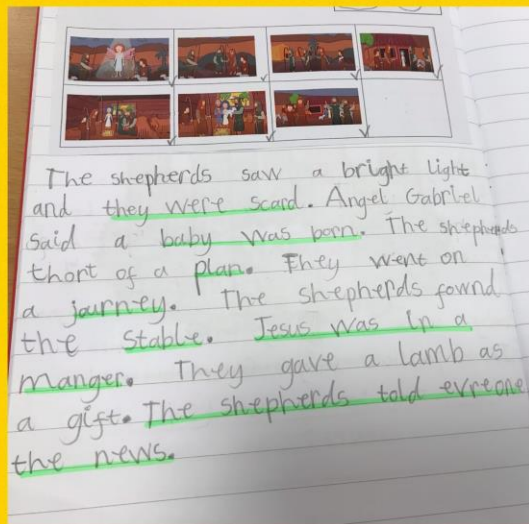 The shepherds saw a bright light
and they were scard. Angel Gabriel
said a baby was born. The shepherds
thort of a plan. They went on
a journey. The shepherds fownd
the stable. Jesus was in a
manger. They gave a lamb as
a gift. The shepherds told evreone
the news.